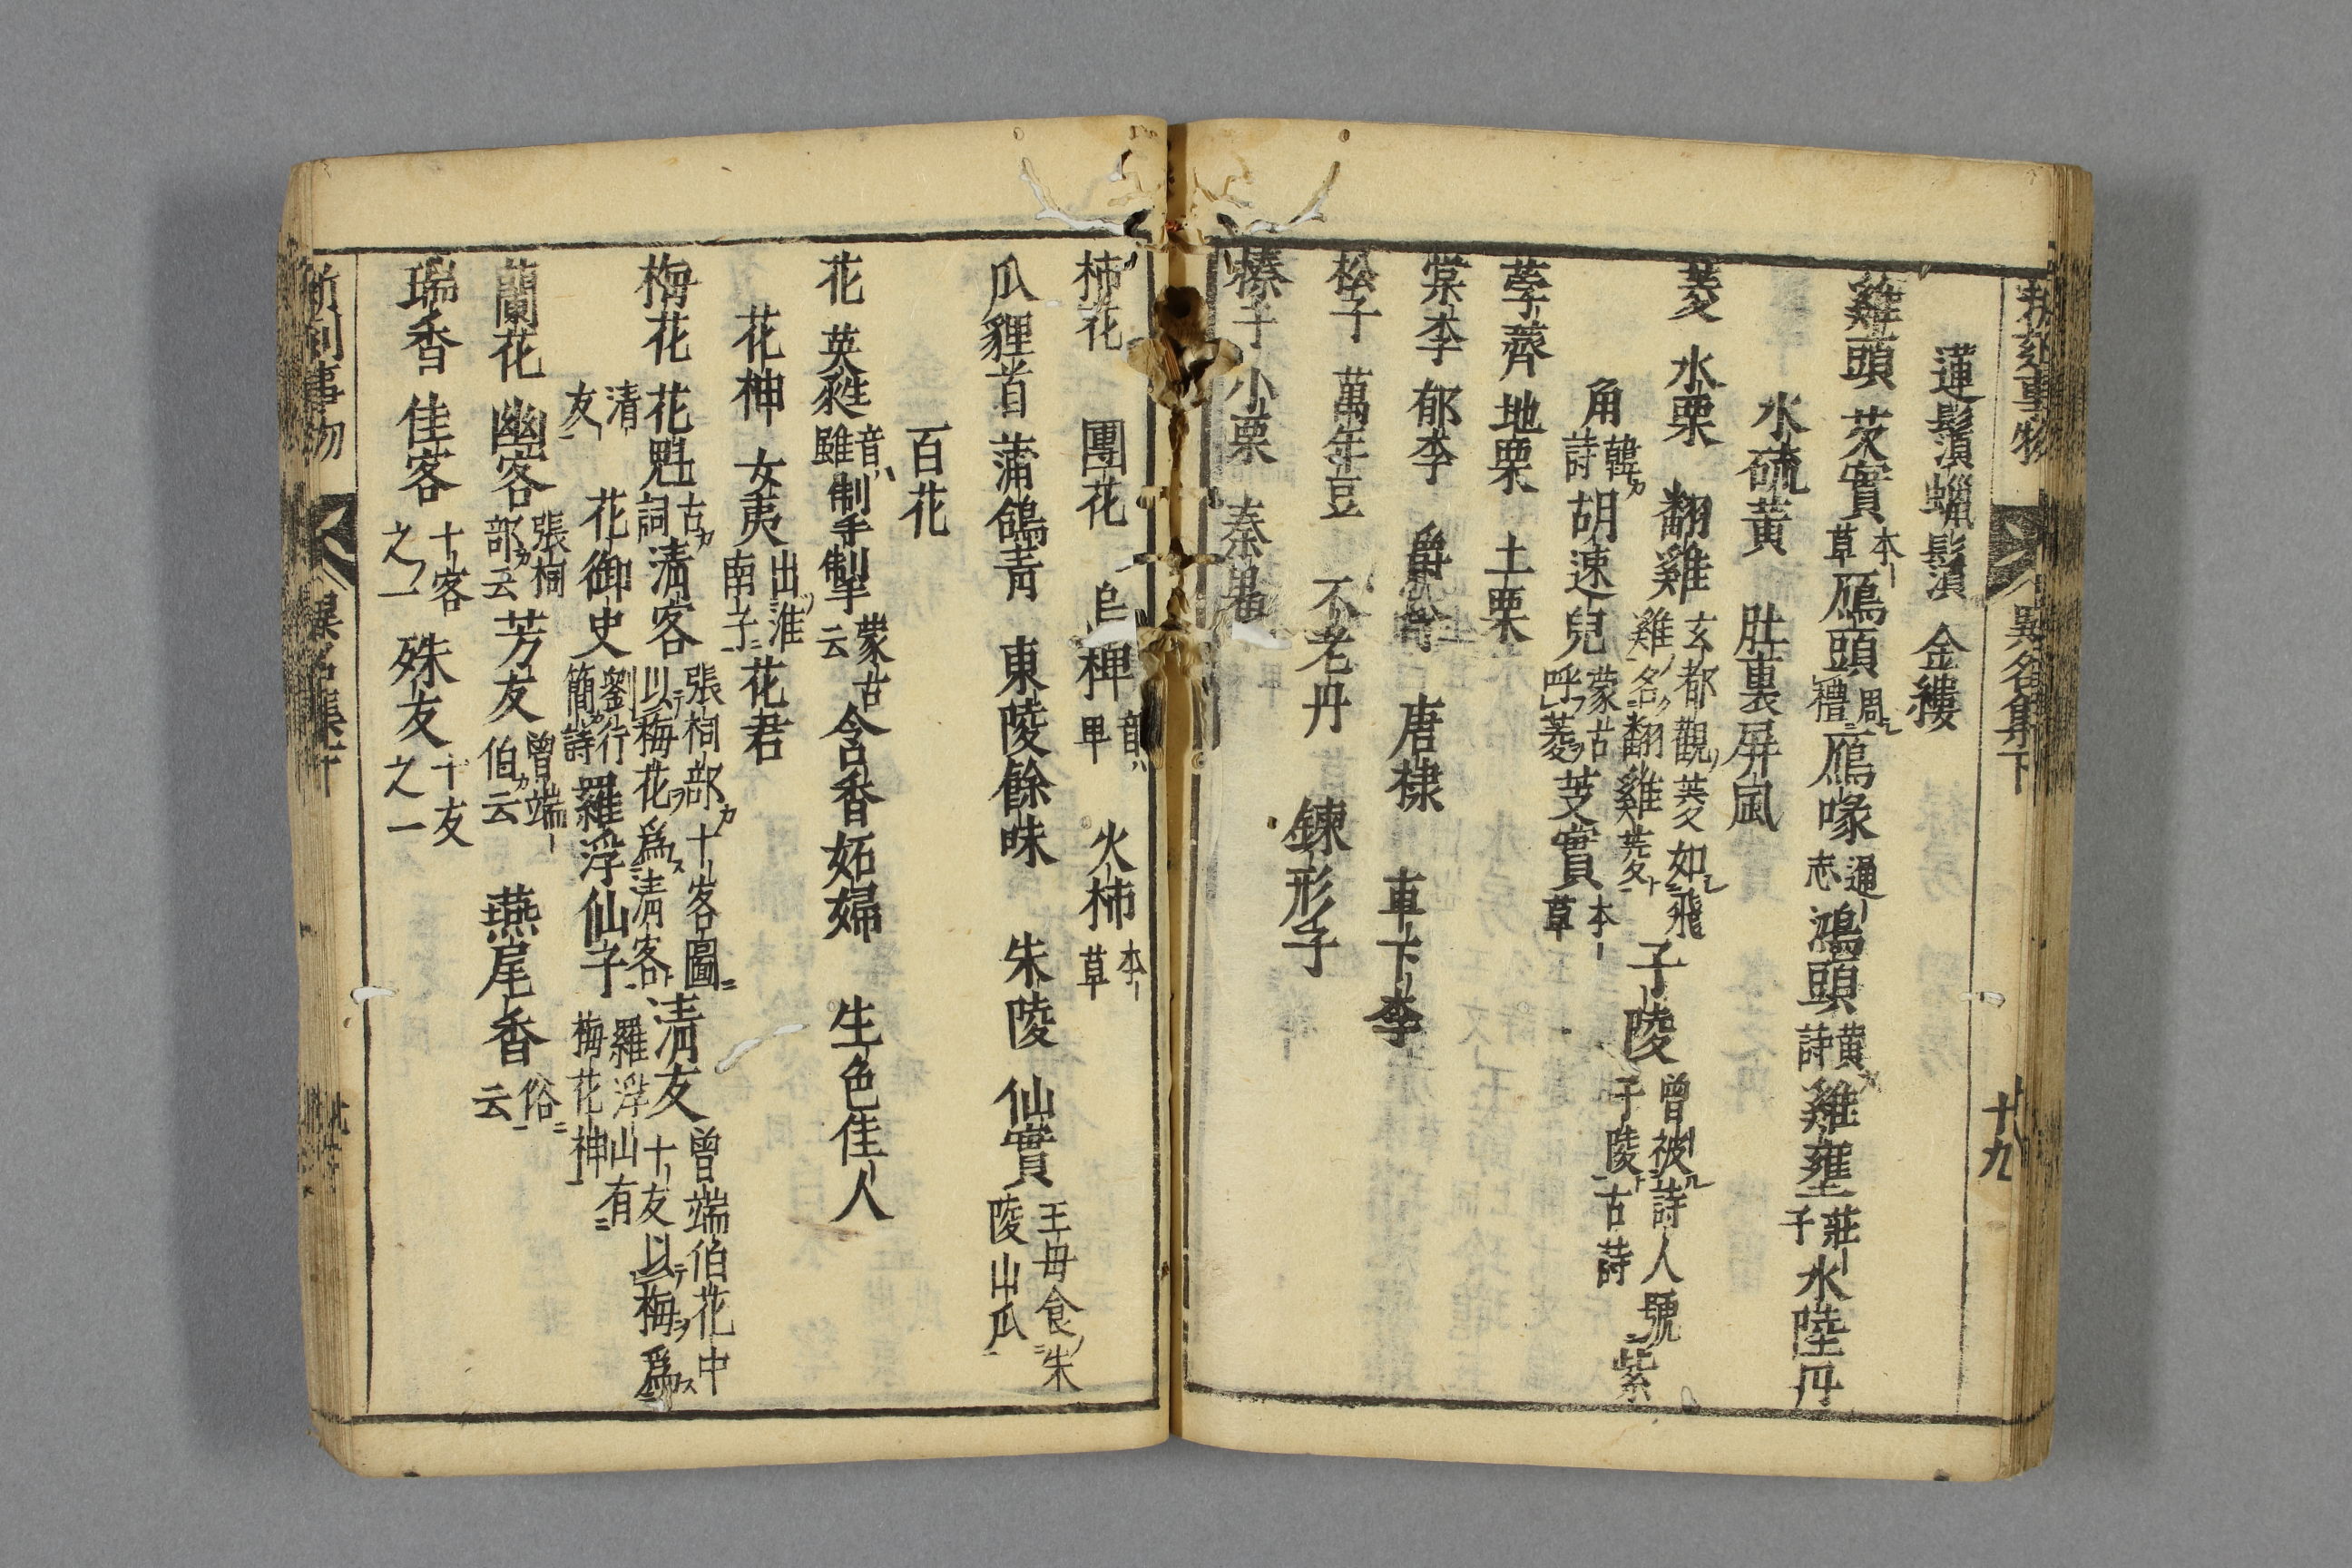 新刻事物 異名集下 十九
蓮鬚 蠟鬚 金縷
雞頭 芡實 本草 鴈頭 周禮 鴈喙 通志 鴻頭 黄詩 雞壅 莊子 水陸丹
水硫黃 肚裏屏風
菱 水栗 翻雞 玄都觀ノ菱如飛雞名翻雞菱 子陵 曾被詩人號子陵古詩 紫
角 韓カ詩 胡速兒 蒙古呼菱 芰實 本草
荸薺 地栗 土栗
棠李 郁李 爵李 唐棣 車下李
松子 萬年豆 不老丹 鍊形子
榛子 小栗 秦
柿花 團花 烏椑 音甲 火柿 本草
瓜 貍首 蒲鴿青 東陵餘味 朱陵 仙實 王母食朱陵山瓜
百花
花 英蕤 音雖 制掣 蒙古云 含香妬婦 生色佳人
花神 女夷 出淮南子 花君
梅花 花魁 古カ詞 清客 張㭎部カ十客圖以テ梅花ヲ爲ス清客ト 清友 曾端伯花中十友以テ梅ヲ爲ス
清友 花御史 劉行簡カ詩 羅浮仙子 羅浮山有梅花神
蘭花 幽客 張㭎部カ云 芳友 曾端伯カ云 燕尾香 俗云
瑞香 佳客 十客之一 殊友 十友之一
新刻事物 異名集下